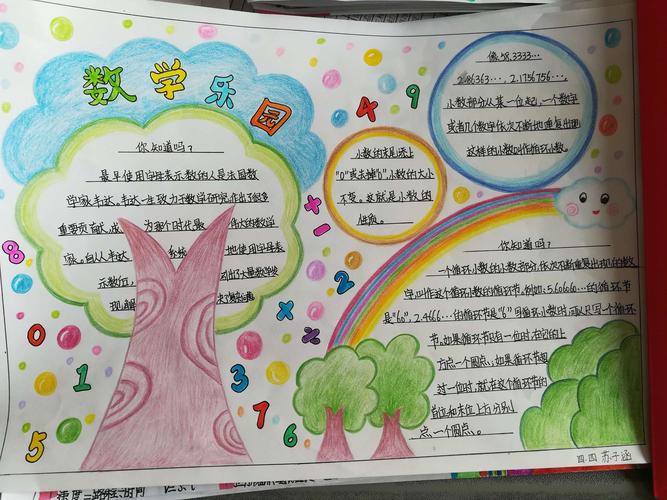 数学乐园
你知道吗?
最早使用字母表示数的人是法国数
学家韦达,韦达一生致力于数学研究,作出了很多
重要贡献,成 为那个时代最 伟大的数学
家。自从韦达 系统 地使用字母表
示数后, 出了大量数学发
现
小数的末尾添上
"0"或去掉"0",小数的大小
不变。这就是小数的
性质。
像58.3333…
2.06363…,2.1756756…,
小数部分从某一位起,一个数字
或者几个数字依次不断地重复出现
这样的小数叫作循环小数。
你知道吗?
一个循环小数的小数部分,依次不断重复出现的数
字,叫作这个循环小数的循环节,例如:5.60606…的循环节
是"60",2.4666…的循环节是"6"写循环小数时,可以只写一个循环
节。如果循环节只有一位时,在它的上
方点一个圆点,如果循环节超
过一位时,就在这个循环节的
首位和末位上方分别
点一个圆点。
4
9
+
1
8
2
×
÷
0
1
3
5
7
6
四.四 苏子涵
速度=路程÷时间